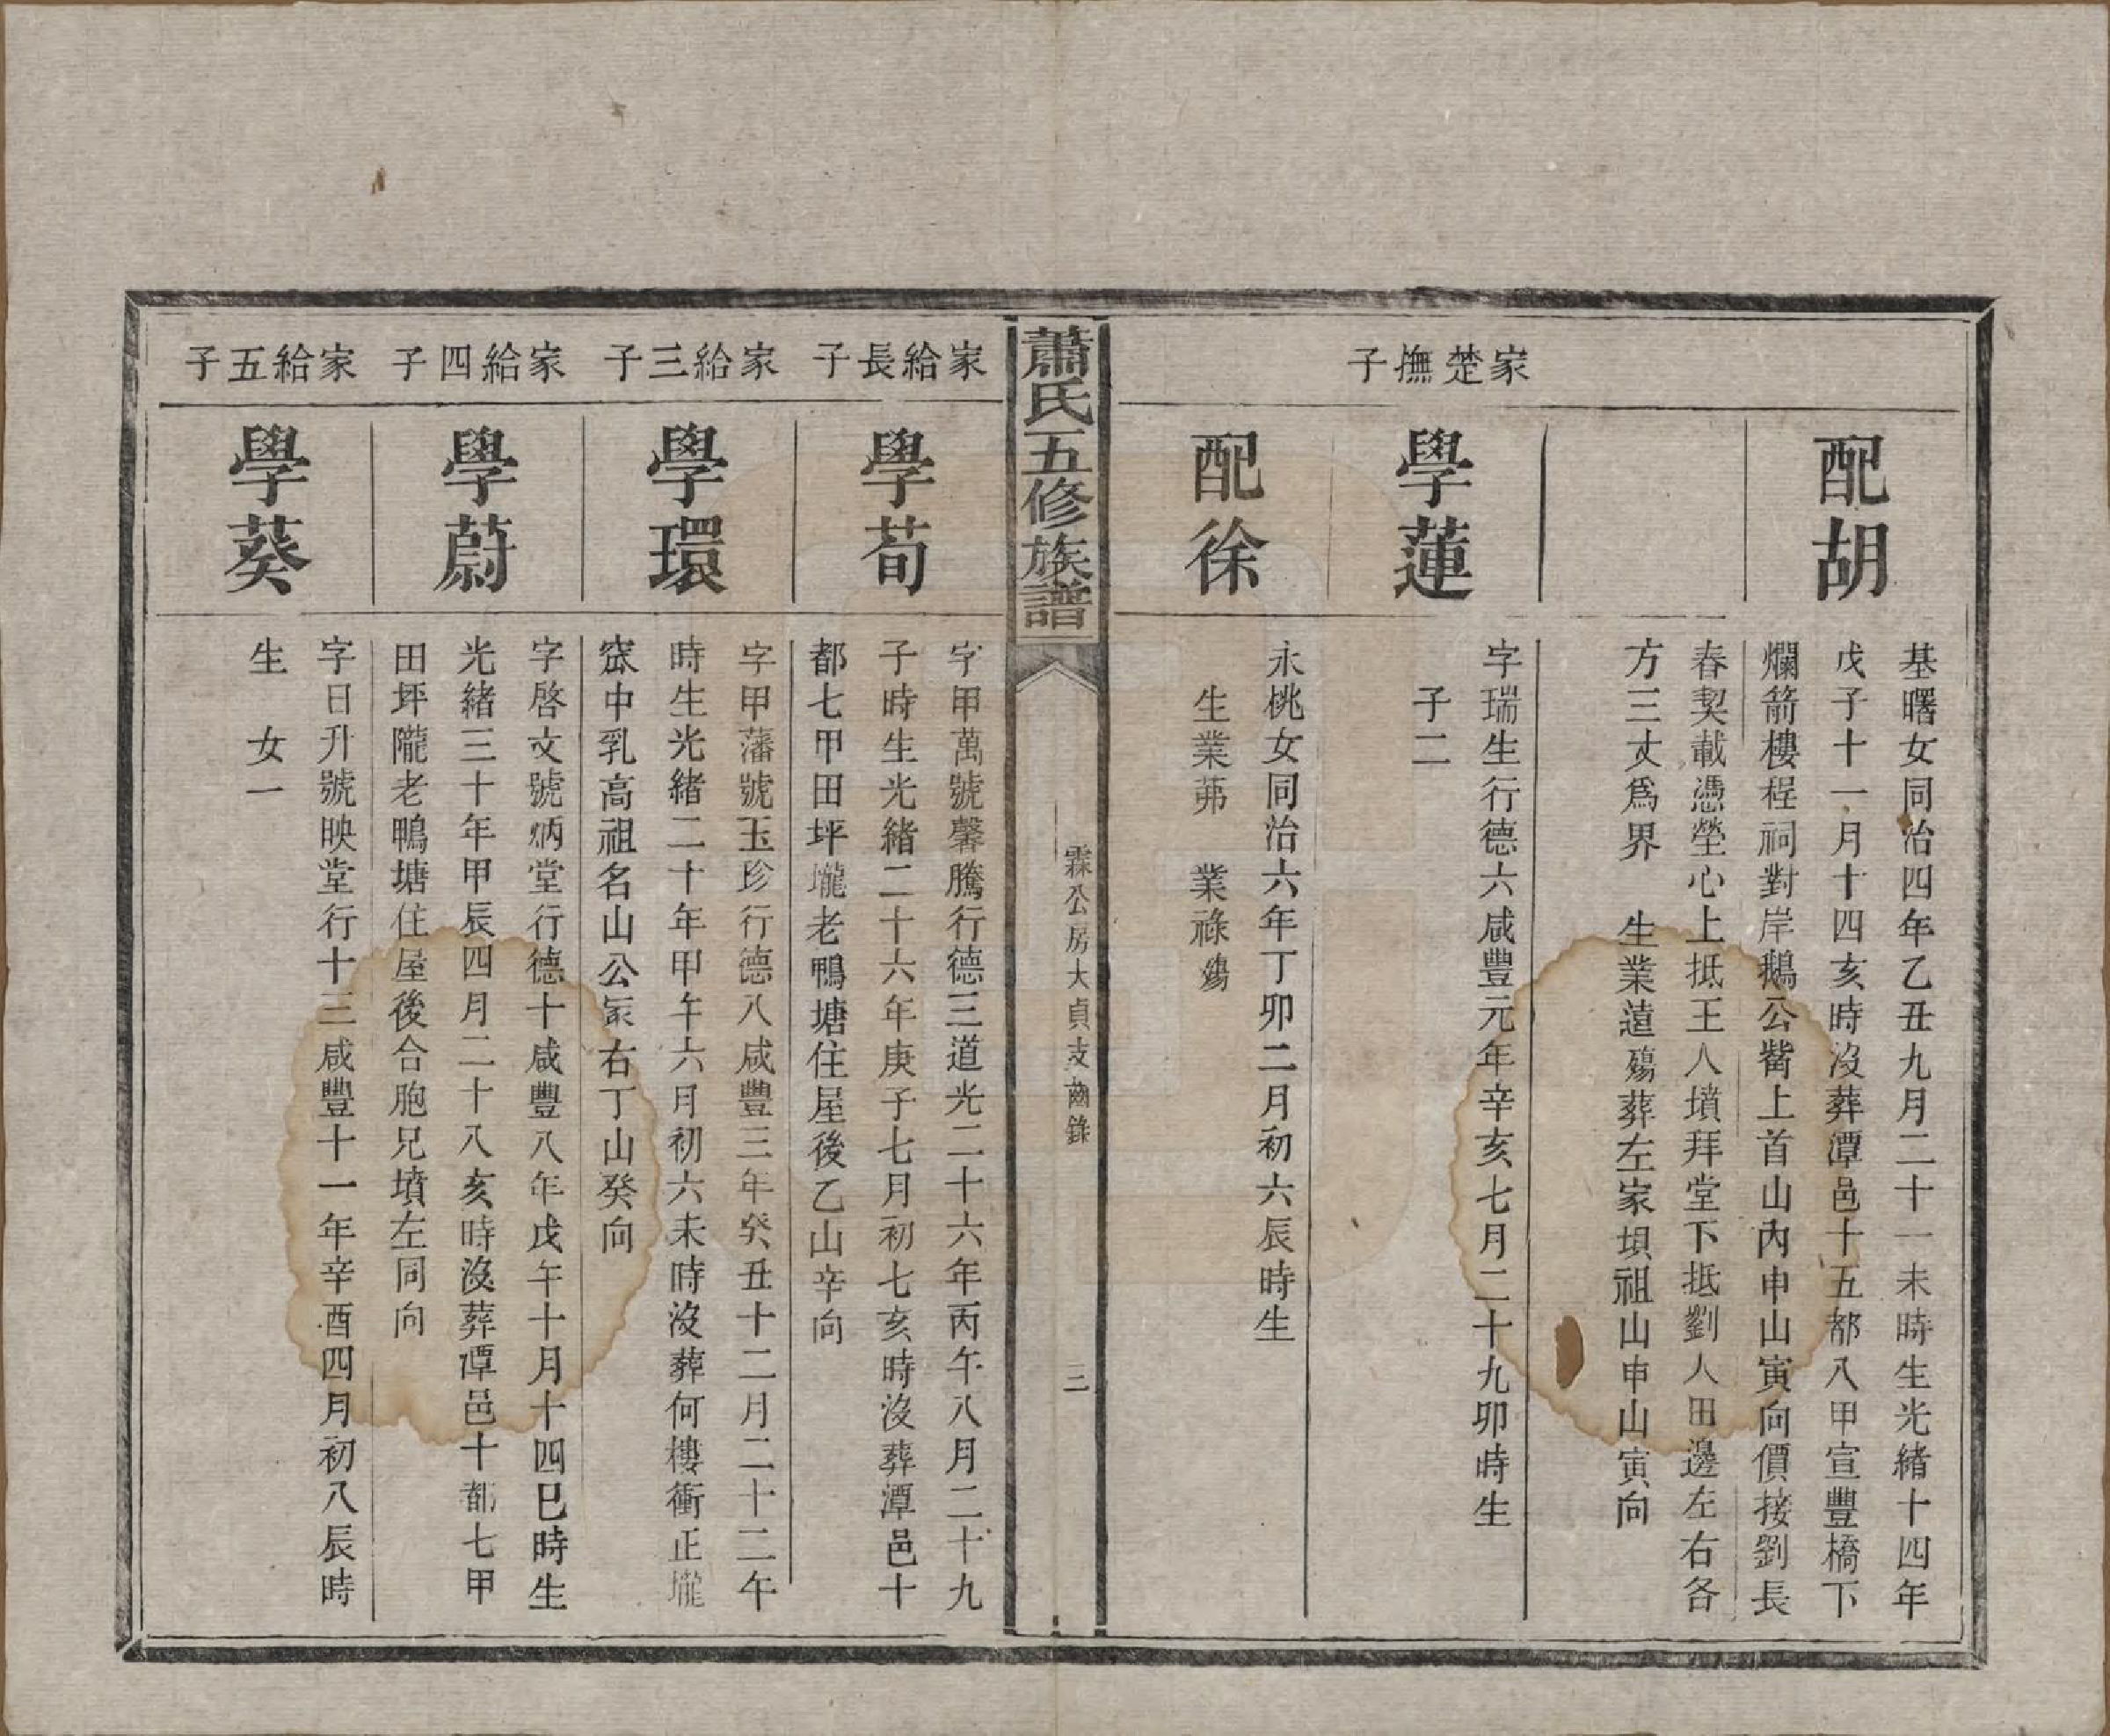 配胡
基曙女同治四年乙丑九月二十一未時生光緒十四年
戊子十一月十四亥時沒葬潭邑十五都八甲宣豐橋下
爛箭樓程祠對岸鵝公觜上首山內申山寅向價接劉長
春契載憑塋心上抵王人墳拜堂下抵劉人田邊左右各
方三丈爲界 生業薳殤葬左家垻祖山申山寅向
家楚撫子
學蓮
字瑞生行德六咸豐元年辛亥七月二十九卯時生
子二
配徐
永桃女同治六年丁卯二月初六辰時生
生業茀 業祿殤
蕭氏五修族譜
霖公房大貞支齒錄
三
家給長子
學荀
字甲萬號馨騰行德三道光二十六年丙午八月二十九
子時生光緒二十六年庚子七月初七亥時沒葬潭邑十
都七甲田坪壠老鴨塘住屋後乙山辛向
家給三子
學環
字甲藩號玉珍行德八咸豐三年癸丑十二月二十二午
時生光緒二十年甲午六月初六未時沒葬何樓衝正壠
窊中乳高祖名山公冢右丁山癸向
家給四子
學蔚
字啓文號炳堂行德十咸豐八年戊午十月十四巳時生
光緒三十年甲辰四月二十八亥時沒葬潭邑十都七甲
田坪隴老鴨塘住屋後合胞兄墳左同向
家給五子
學葵
字日升號映堂行十三咸豐十一年辛酉四月初八辰時
生 女一